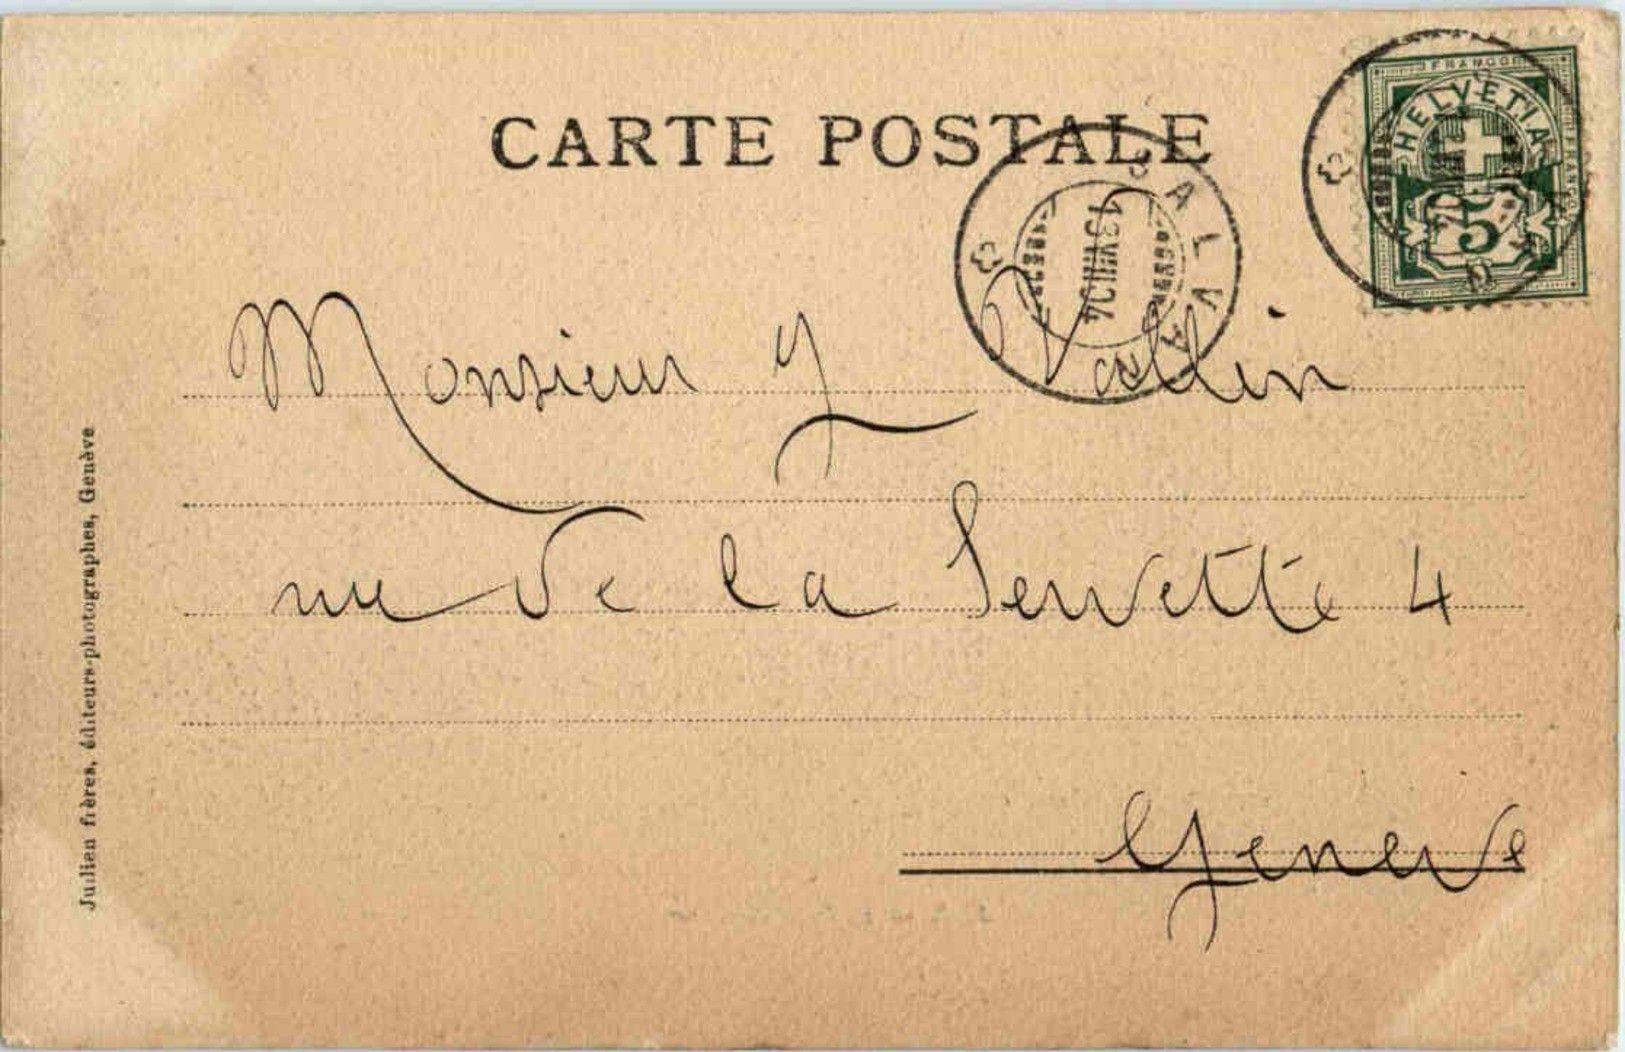 CARTE POSTALE
FRANCO
HELVETIA
5
SALVAN
13 VIII 04
Monsieur J Vallin
rue de la Servette 4
Geneve
Jullien frères, éditeurs-photographes, Genève